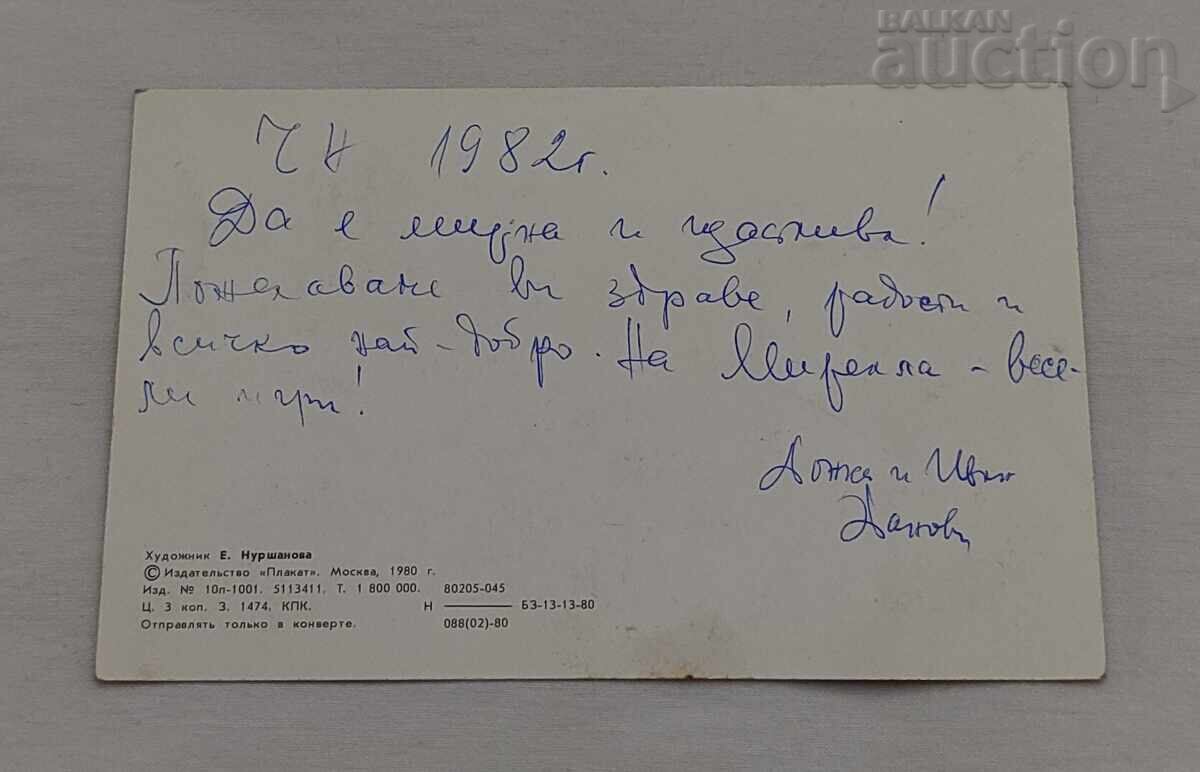 BALKAN
auction
ЧН 1982г.
Да е мирна и щастлива!
Пожелаваме ви здраве, радости и
всичко най-добро. На Мирелла - весе-
ли игри!
и Иван
Художник Е. Нуршанова
© Издательство «Плакат». Москва, 1980 г.
Изд. № 10п-1001. 5113411. Т. 1 800 000. 80205-045
Ц. 3 коп. З. 1474. КПК. Н ——— БЗ-13-13-80
Отправлять только в конверте. 088(02)-80